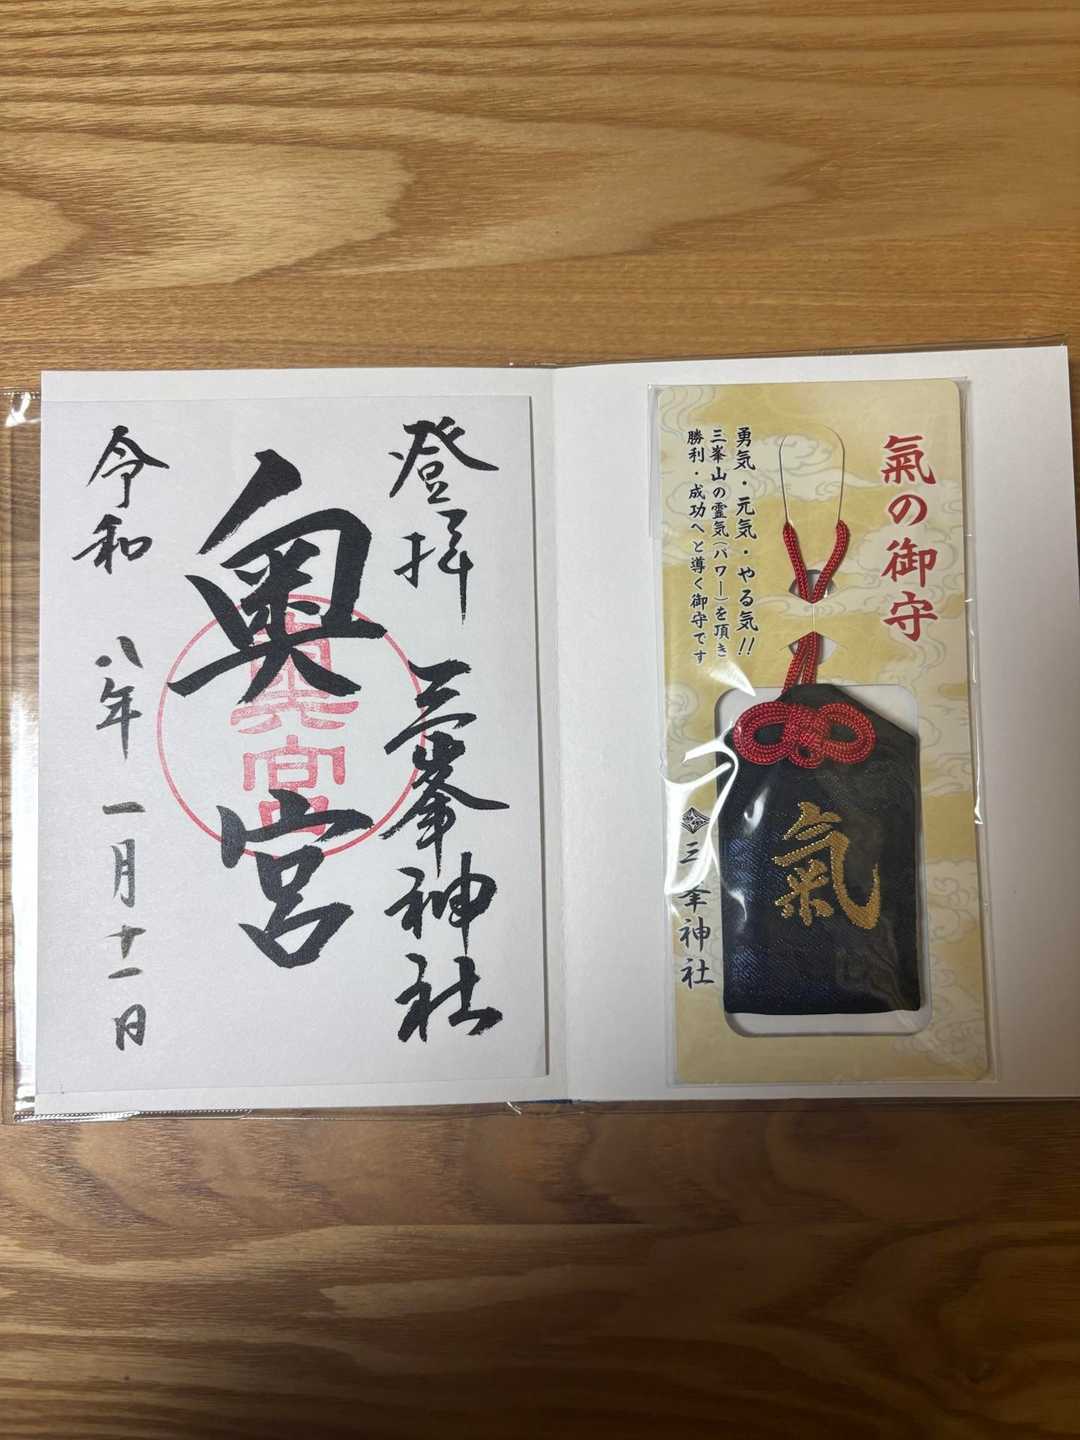 登拝 三峯神社
奥宮
奥宮
令和 八年 一月十一日
氣の御守
勇気・元気・やる気!!
三峯山の霊気(パワー)を頂き
勝利・成功へと導く御守です
氣
三峯神社